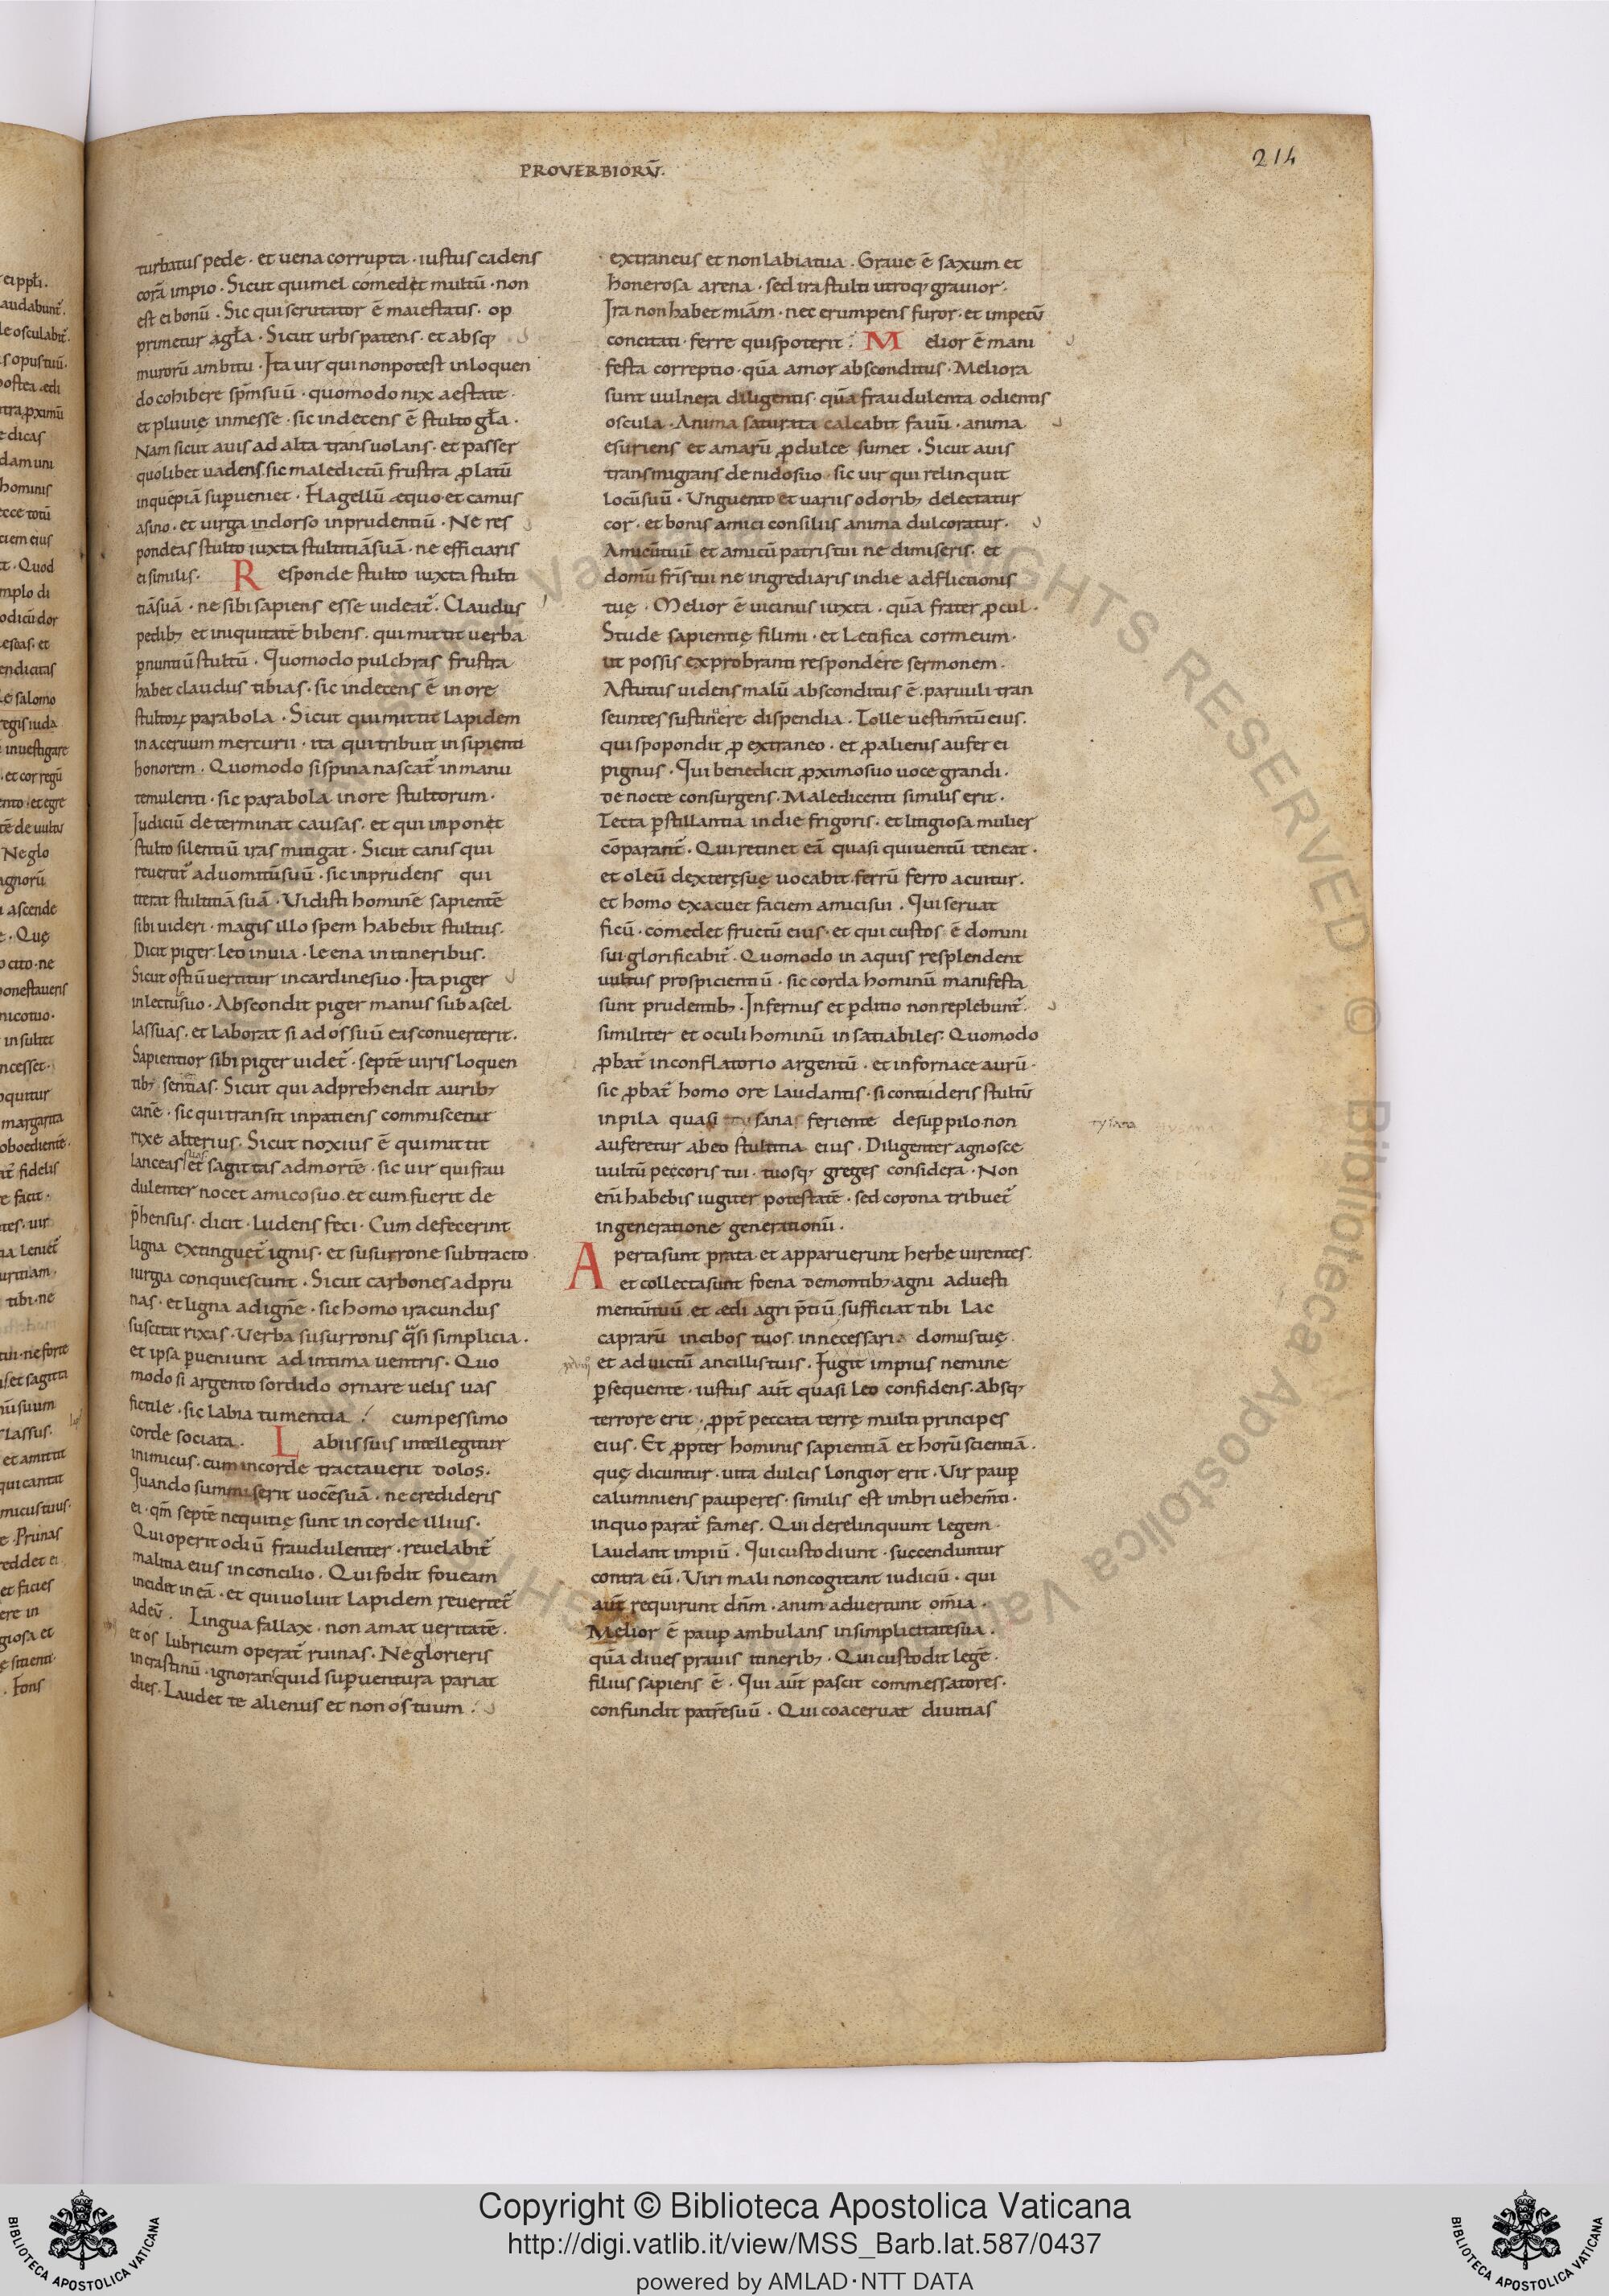 PROVERBIORŪ.
214
turbatus pede · et uena corrupta · iustus cadens
corā impio · Sicut qui mel comedit multū · non
est ei bonū · Sic qui scrutator ē maiestatis · op
primetur a gła · Sicut urbs patens · et absq;
murorū ambitu · Ita uir qui non potest in loquen
do cohibere sp̄m suū · quomodo nix aestate ·
et pluuię in messe · sic indecens ē stulto gła ·
Nam sicut auis ad alta transuolans · et passer
quolibet uadens · sic maledictū frustra ꝓlatū
in quepiā sup̱ueniet · Flagellū æquo · et camus
asino · et uirga in dorso inprudentiū · Ne res
pondeas stulto iuxta stultitiā suā · ne efficiaris
ei similis · Responde stulto iuxta stulti
tiā suā · ne sibi sapiens esse uideat᷑ · Claudus
pedib; et iniquitatē bibens · qui mittit uerba
ꝑ nuntiū stultū · Quomodo pulchras frustra
habet claudus tibias · sic indecens ē in ore
stultoꝝ parabola · Sicut qui mittit lapidem
in aceruum mercurii · ita qui tribuit insipienti
honorem · Quomodo si spina nascat᷑ in manu
temulenti · sic parabola in ore stultorum ·
Iudiciū determinat causas · et qui imponet
stulto silentiū iras mitigat · Sicut canis qui
reuertit᷑ ad uomitū suū · sic imprudens qui
iterat stultitiā suā · Uidisti hominē sapientē
sibi uideri · magis illo spem habebit stultus ·
Dicit piger · leo in uia · leena in itineribus ·
Sicut ostiū uertitur in cardine suo · Ita piger
in lectulo suo · Abscondit piger manus sub ascel
las suas · et laborat si ad os suū eas conuerterit ·
Sapientior sibi piger uidet᷑ · septē uiris loquen
tib; sententias · Sicut qui adprehendit aurib;
canē · sic qui transit inpatiens commiscetur
rixe alterius · Sicut noxius ē qui mittit
lanceas suas et sagittas ad mortē · sic uir qui frau
dulenter nocet amico suo · et cum fuerit de
p̄hensus · dicit · ludens feci · Cum defecerint
ligna extinguet᷑ ignis · et susurrone subtracto
iurgia conquiescunt · Sicut carbones ad pru
nas · et ligna ad ignē · sic homo iracundus
suscitat rixas · Uerba susurronis qͣsi simplicia ·
et ipsa ꝑueniunt ad intima uentris · Quo
modo si argento sordido ornare uelis uas
fictile · sic labia tumentia cum pessimo
corde sociata · Labiis suis intellegitur
inimicus · cum in corde tractauerit dolos ·
Quando summiserit uocē suā · ne credideris
ei · qm̄ septē nequitię sunt in corde illius ·
Qui operit odiū fraudulenter · reuelabit᷑
malitia eius in concilio · Qui fodit foueam
incidit in eā · et qui uoluit lapidem reuertet᷑
ad eū · Lingua fallax · non amat ueritatē ·
et os lubricum operat᷑ ruinas · Ne glorieris
in crastinū · ignorans quid sup̱uentura pariat
dies · Laudet te alienus et non os tuum ·
extraneus et non labia tua · Graue ē saxum et
honerosa arena · sed ira stulti utroq; grauior ·
Ira non habet miām · nec erumpens furor · et impetū
concitati · ferre quis poterit · Melior ē mani
festa correptio · quā amor absconditus · Meliora
sunt uulnera diligentis · quā fraudulenta odientis
oscula · Anima saturata calcabit fauū · anima
esuriens et amarū ꝓ dulce sumet · Sicut auis
transmigrans de nido suo · sic uir qui relinquit
locū suū · Unguento et uariis odorib; delectatur
cor · et bonis amici consiliis anima dulcoratur ·
Amicū tuū et amicū patris tui ne dimiseris · et
domū fr̄is tui ne ingrediaris in die adflictionis
tuę · Melior ē uicinus iuxta · quā frater ꝓcul ·
Stude sapientię fili mi · et letifica cor meum ·
ut possis exprobranti respondere sermonem ·
Astutus uidens malū absconditus ē · paruuli tran
seuntes sustinuere dispendia · Tolle uestim̄tū eius ·
qui spopondit ꝓ extraneo · et ꝓ alienis aufer ei
pignus · Qui benedicit ꝓximo suo uoce grandi ·
de nocte consurgens · Maledicenti similis erit ·
Tecta ꝑstillantia in die frigoris · et litigiosa mulier
cōparant᷑ · Qui retinet eā quasi qui uentū teneat ·
et oleū dexterę suę uocabit · ferrū ferro acuitur ·
et homo exacuet faciem amici sui · Qui seruat
ficū · comedet fructū eius · et qui custos ē domini
sui · glorificabit᷑ · Quomodo in aquis resplendent
uultus prospicientiū · sic corda hominū manifesta
sunt prudentib; · Infernus et ꝑditio non replebunt᷑ ·
similiter et oculi hominū insatiabiles · Quomodo
ꝓbat᷑ in conflatorio argentū · et in fornace aurū ·
sic ꝓbat᷑ homo ore laudantis · si contuderis stultū
in pila quasi tysanas feriente desup̱ pilo · non
tysana
auferetur ab eo stultitia eius · Diligenter agnosce
uultū peccoris tui · tuosq; greges considera · Non
enī habebis iugiter potestatē · sed corona tribuet᷑
in generatione generationū ·
Aperta sunt prata et apparuerunt herbe uirentes
et collecta sunt foena de montib; · agni ad uesti
mentū tuū · et ædi agri p̄tiū · sufficiat tibi lac
caprarū in cibos tuos · in necessaria domus tuę ·
et ad uictū ancillis tuis · Fugit impius nemine
ꝑsequente · iustus aūt quasi leo confidens · absq;
terrore erit · ꝓpt̄ peccata terrę multi principes
eius · Et ꝓpter hominis sapientiā et horū scientiā ·
quę dicuntur · uita dulcis longior erit · Vir paup̱
calumniens pauperes · similis est imbri uehem̄ti ·
in quo parat᷑ fames · Qui derelinquunt legem
laudant impiū · Qui custodiunt · succenduntur
contra eū · Viri mali non cogitant iudiciū · qui
aūt requirunt dn̄m · animaduertunt om̄ia ·
Melior ē paup̱ ambulans in simplicitate sua ·
quā diues prauis itinerib; · Qui custodit legē ·
filius sapiens ē · Qui aūt pascit commessatores ·
confundit patrē suū · Qui coaceruat diuitias
Copyright © Biblioteca Apostolica Vaticana
http://digi.vatlib.it/view/MSS_Barb.lat.587/0437
powered by AMLAD·NTT DATA
BIBLIOTECA APOSTOLICA VATICANA
BIBLIOTECA APOSTOLICA VATICANA